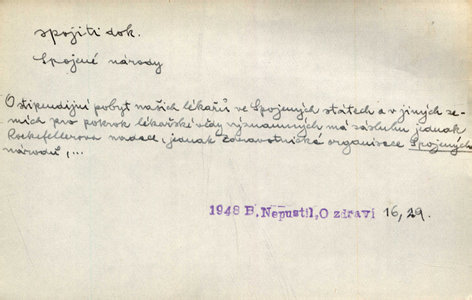 spojiti dok.
Spojené národy
O stipendijní pobyt našich lékařů ve Spojených státech a v jiných ze-
mích pro pokrok lékařské vědy významných má zásluhu jednak
Rockefellerova nadace, jednak zdravotnické organisace Spojených
národů,...
1948 B. Nepustil, O zdraví 16, 29.